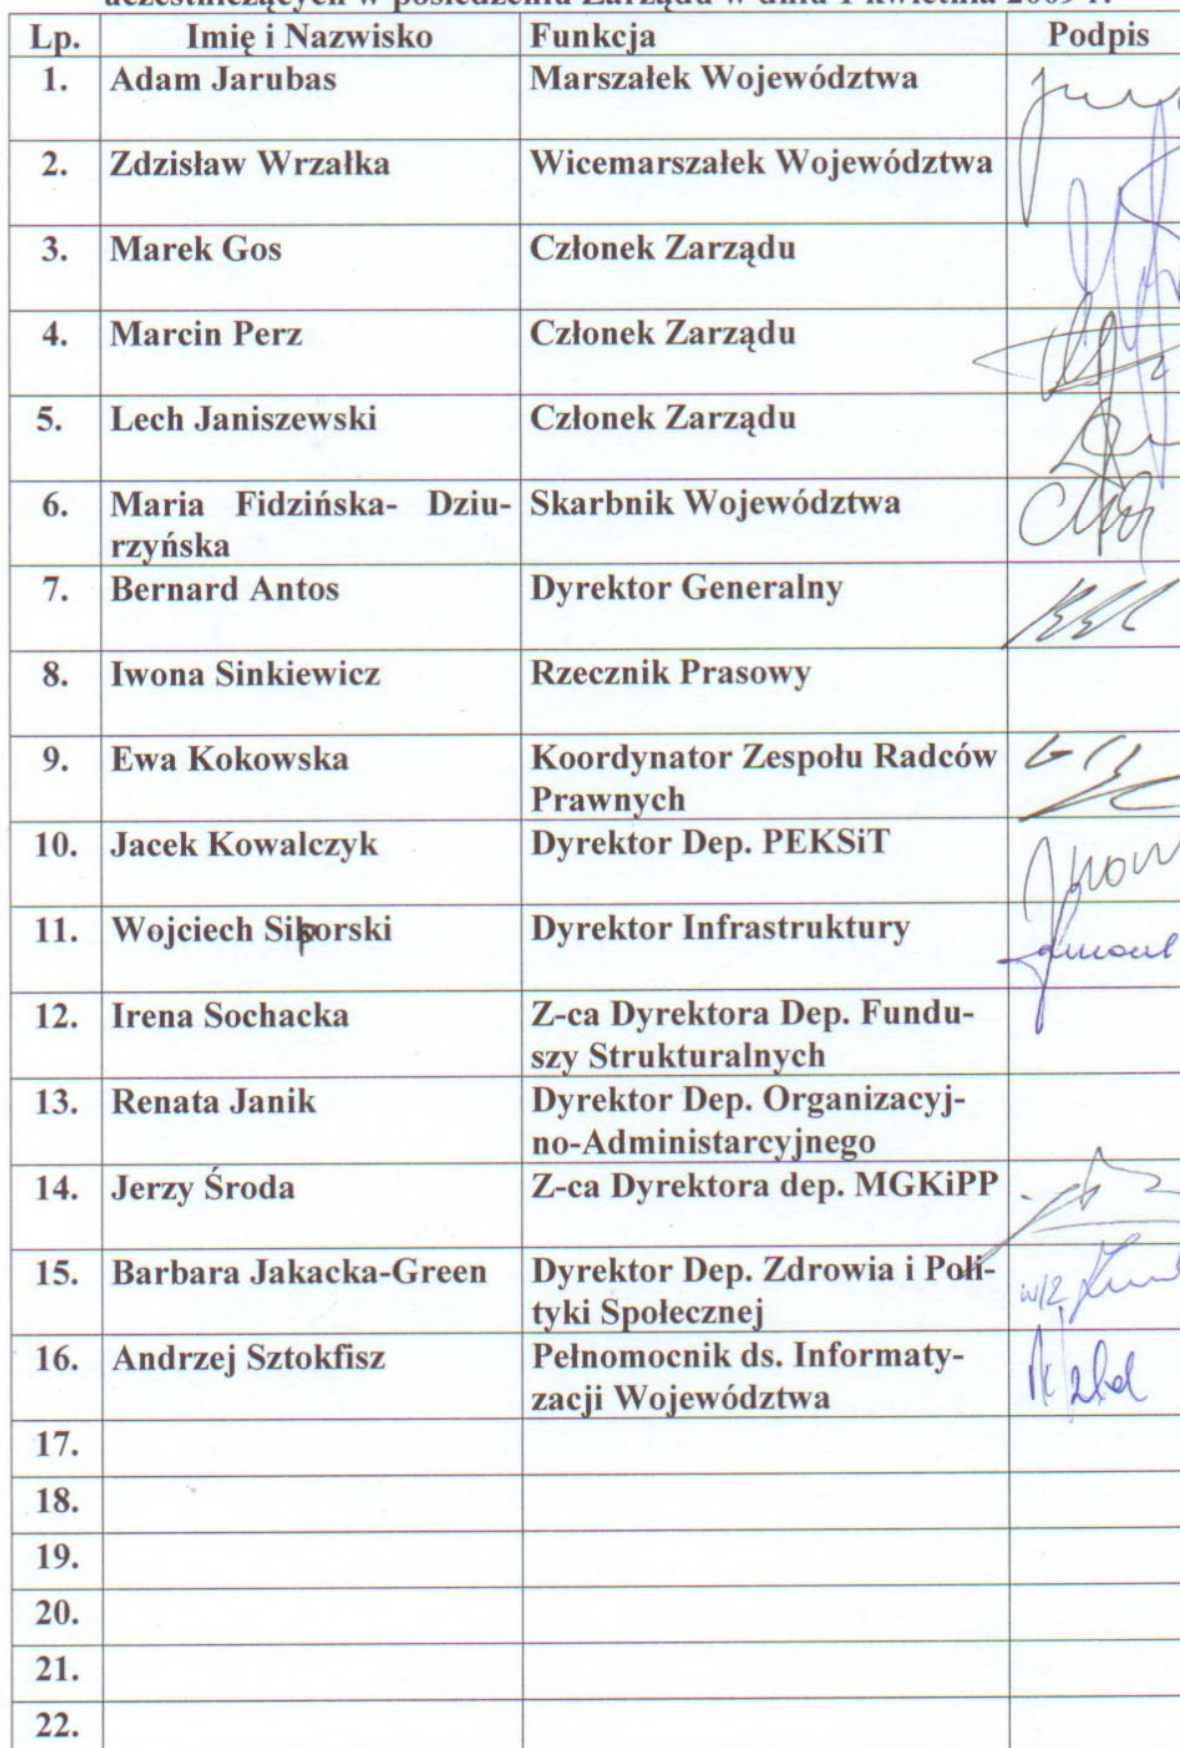 uczestniczących w posiedzeniu Zarządu w dniu 1 kwietnia 2009 r.
Lp. Imię i Nazwisko Funkcja Podpis
1. Adam Jarubas Marszałek Województwa
2. Zdzisław Wrzałka Wicemarszałek Województwa
3. Marek Gos Członek Zarządu
4. Marcin Perz Członek Zarządu
5. Lech Janiszewski Członek Zarządu
6. Maria Fidzińska- Dziu- Skarbnik Województwa
rzyńska
7. Bernard Antos Dyrektor Generalny
8. Iwona Sinkiewicz Rzecznik Prasowy
9. Ewa Kokowska Koordynator Zespołu Radców
Prawnych
10. Jacek Kowalczyk Dyrektor Dep. PEKSiT
11. Wojciech Siporski Dyrektor Infrastruktury
12. Irena Sochacka Z-ca Dyrektora Dep. Fundu-
szy Strukturalnych
13. Renata Janik Dyrektor Dep. Organizacyj-
no-Administarcyjnego
14. Jerzy Środa Z-ca Dyrektora dep. MGKiPP
15. Barbara Jakacka-Green Dyrektor Dep. Zdrowia i Poli-
tyki Społecznej w/z
16. Andrzej Sztokfisz Pełnomocnik ds. Informaty-
zacji Województwa
17.
18.
19.
20.
21.
22.